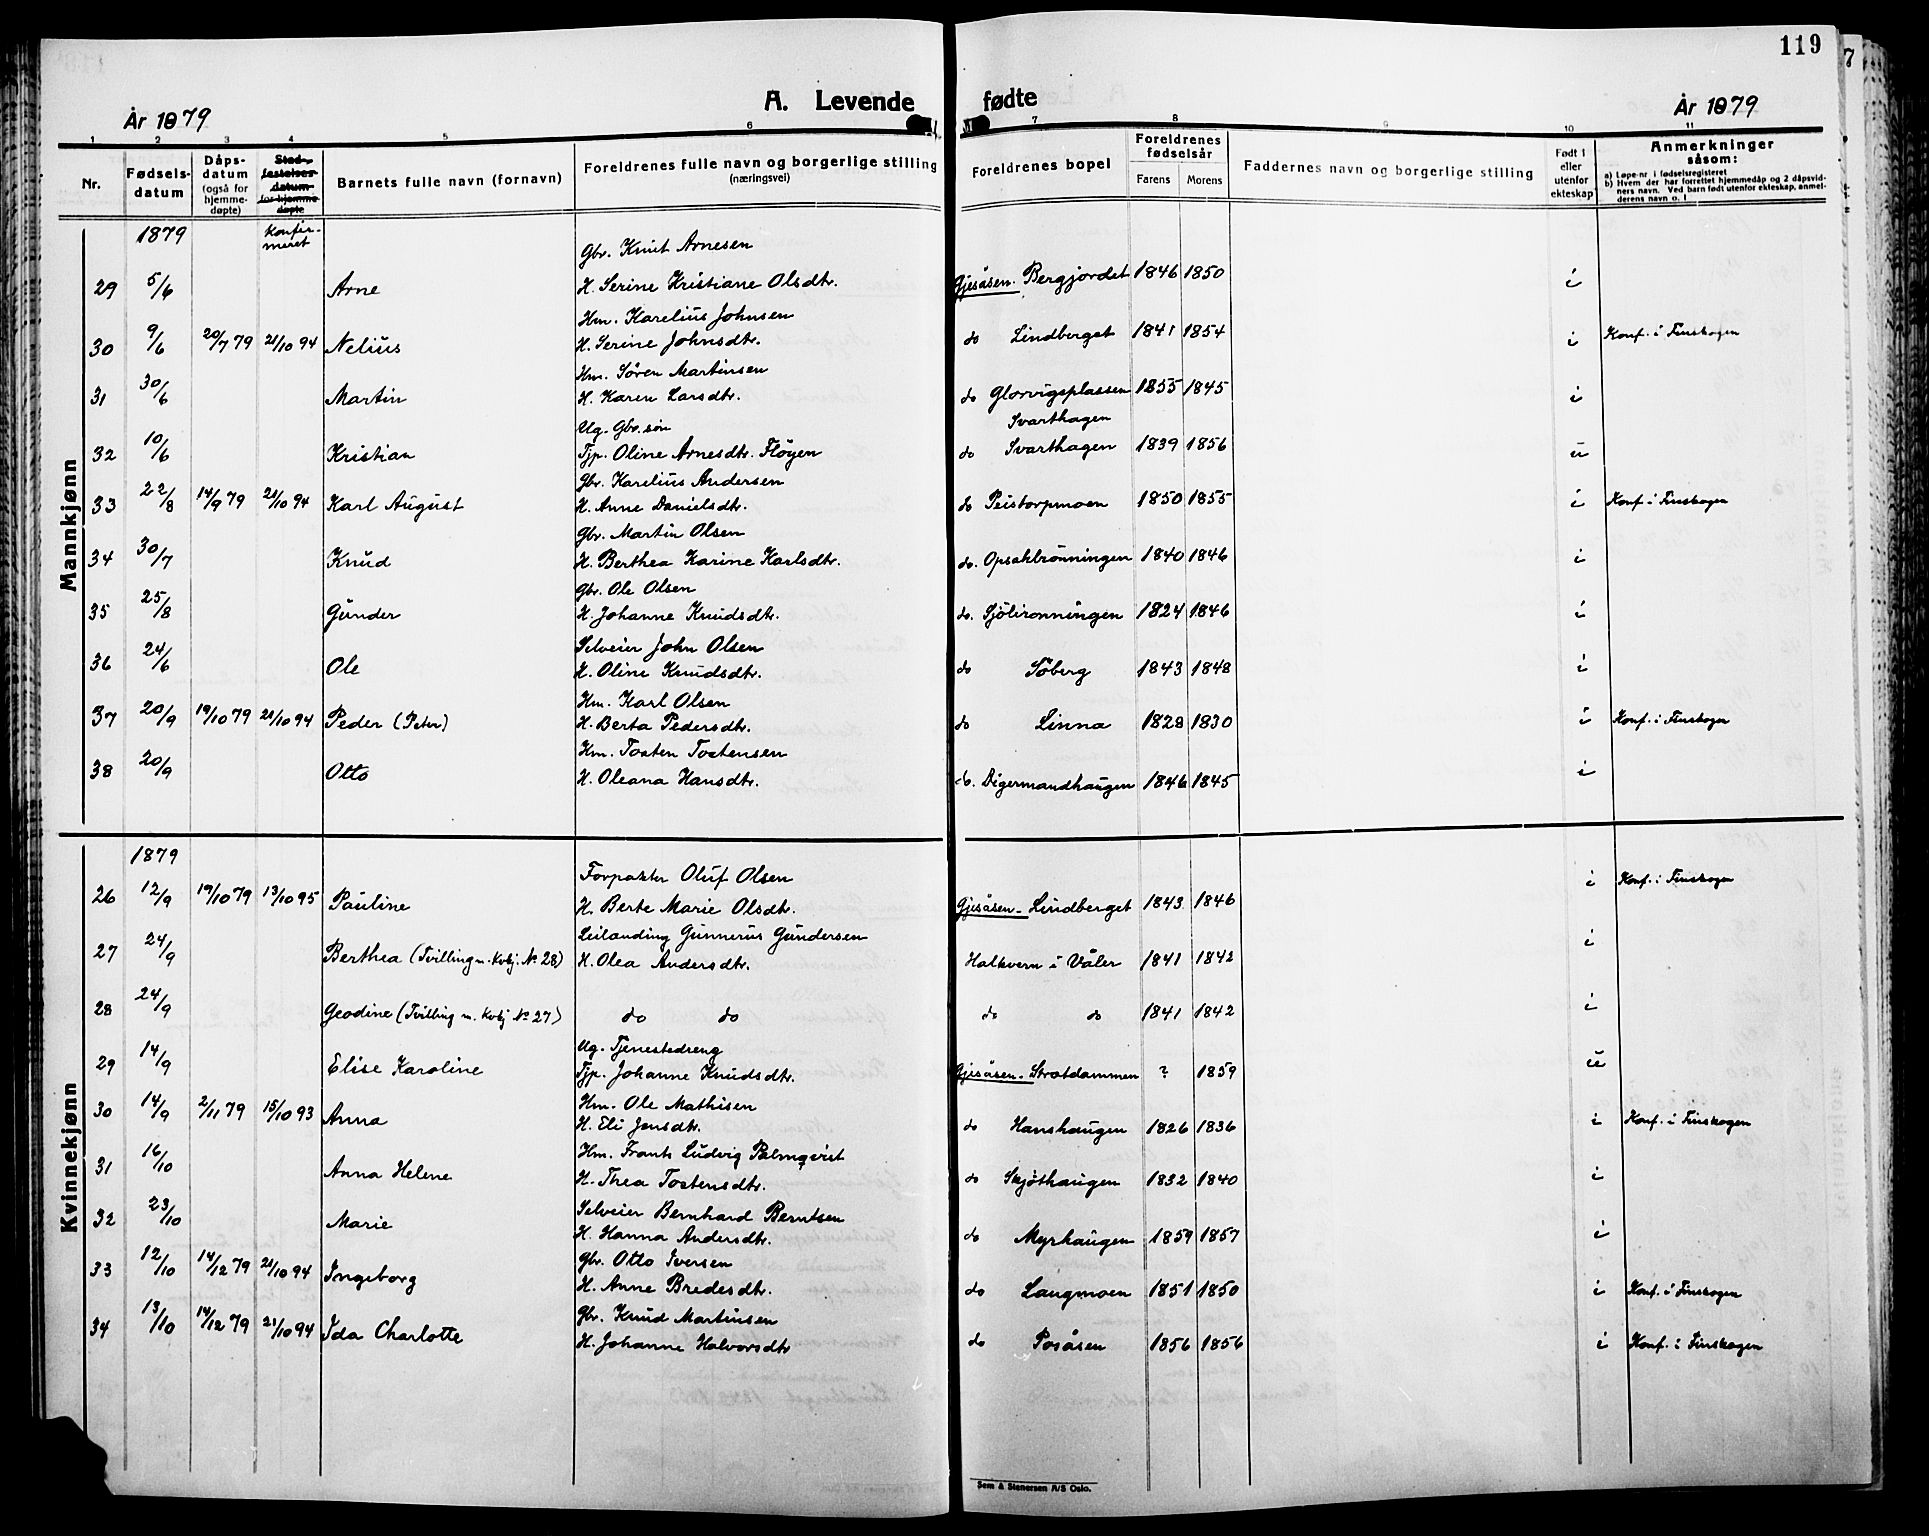 119
7
A. Levende fødte
År 1879
År 1879
1 2 3 4 5 6 7 8 9 10 11
Nr.
Fødselsdatum
Dåpsdatum (også for hjemmedøpte)
Stadfestelsesdatum for hjemmedøpte
Barnets fulle navn (fornavn)
Foreldrenes fulle navn og borgerlige stilling (næringsvei)
Foreldrenes bopel
Foreldrenes fødselsår
Farens Morens
Faddernes navn og borgerlige stilling
Født i eller utenfor ekteskap
Anmerkninger såsom:
a) Løpe-nr i fødselsregisteret
b) Hvem der har forrettet hjemmedåp og 2 dåpsvidners navn. Ved barn født utenfor ekteskap, anmelderens navn o. l
Mannkjønn
1879 Konfirmeret
Gbr. Knut Arnesen
29 5/6 Arne H. Serine Kristiane Olsdtr. Gjesåsen. Bergjordet 1846 1850 i
Hm. Karelius Johnsen
30 9/6 20/7 79 21/10 94 Nelius H. Serine Johnsdtr. do Lindberget 1841 1854 i Konf. i Finskogen
Hm. Søren Martinsen
31 30/6 Martin H. Karen Larsdtr. do Glorvigsplassen 1855 1845 i
Ug. Gbr. søn Svarthagen
32 10/6 Kristian Tjp. Oline Arnesdtr. Fløyen do Svarthagen 1839 1856 u
Gbr. Karelius Andersen
33 22/8 14/9 79 21/10 94 Karl August H. Anne Danielsdtr. do Peistorpmoen 1850 1855 i Konf. i Finskogen
Gbr. Martin Olsen
34 30/7 Knud H. Berthea Karine Karlsdtr. do. Opsahlrønningen 1840 1846 i
Gbr. Ole Olsen
35 25/8 Gunder H. Johanne Knudsdtr. do. Sjølironningen 1824 1846 i
Selveier John Olsen
36 24/6 Ole H. Oline Knudsdtr. do Søberg 1843 1848 i
Hm. Karl Olsen
37 20/9 19/10 79 21/10 94 Peder (Peter) H. Berta Pedersdtr. do Linna 1828 1830 i Konf. i Finskogen
Hm. Tosten Tostensen
38 20/9 Otto H. Oleana Hansdtr. do. Digermandhaugen 1846 1845 i
Kvinnekjønn
1879
Forpakter Oluf Olsen
26 12/9 19/10 79 13/10 95 Pauline H. Berte Marie Olsdtr. Gjesåsen- Lindberget 1843 1846 i Konf. i Finskogen
Leilanding Gunnerus Gundersen
27 24/9 Berthea (Tvilling m. Kvkj. No 28) H. Olea Andersdtr. Halkvern i Våler 1841 1842 i
28 24/9 Geodine (Tvilling m. Kvkj No 27) do do do do 1841 1842 i
Ug. Tjenestedreng
29 14/9 Elise Karoline Tjp. Johanne Knudsdtr. Gjesåsen- Stratdammen ? 1859 u
Hm. Ole Mathisen
30 14/9 2/11 79 15/10 93 Anna H. Eli Jensdtr. do Hanshaugen 1826 1836 i Konf. i Finskogen
Hm. Frants Ludvig Palmqvist
31 16/10 Anna Helene H. Thea Tostensdtr. do Skjøthaugen 1832 1840 i
Selveier Bernhard Berntsen
32 23/10 Marie H. Hanna Andersdtr. do Myrhaugen 1859 1857 i
Gbr. Otto Iversen
33 12/10 14/12 79 21/10 94 Ingeborg H. Anne Bredesdtr. do Langmoen 1851 1850 i Konf. i Finskogen
Gbr. Knud Martinsen
34 13/10 14/12 79 21/10 94 Ida Charlotte H. Johanne Halvorsdtr do Posåsen 1856 1856 i Konf. i Finskogen
Sem & Stenersen A/S Oslo.